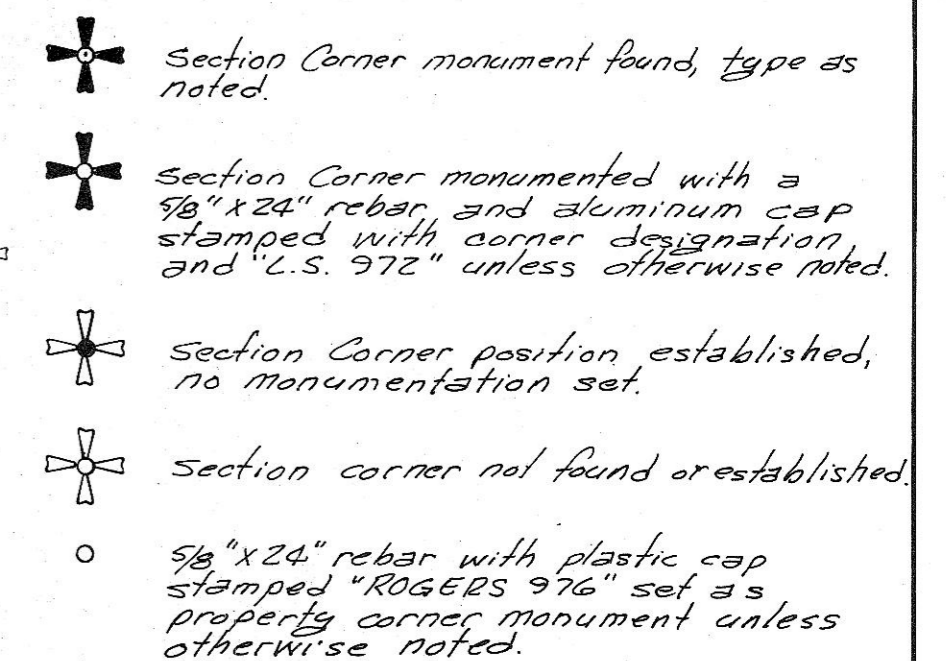 Section Corner monument found, type as
noted.
Section Corner monumented with a
5/8" x 24" rebar and aluminum cap
stamped with corner designation
and "L.S. 972" unless otherwise noted.
Section Corner position established,
no monumentation set.
Section corner not found or established.
5/8" x 24" rebar with plastic cap
stamped "ROGERS 976" set as
property corner monument unless
otherwise noted.